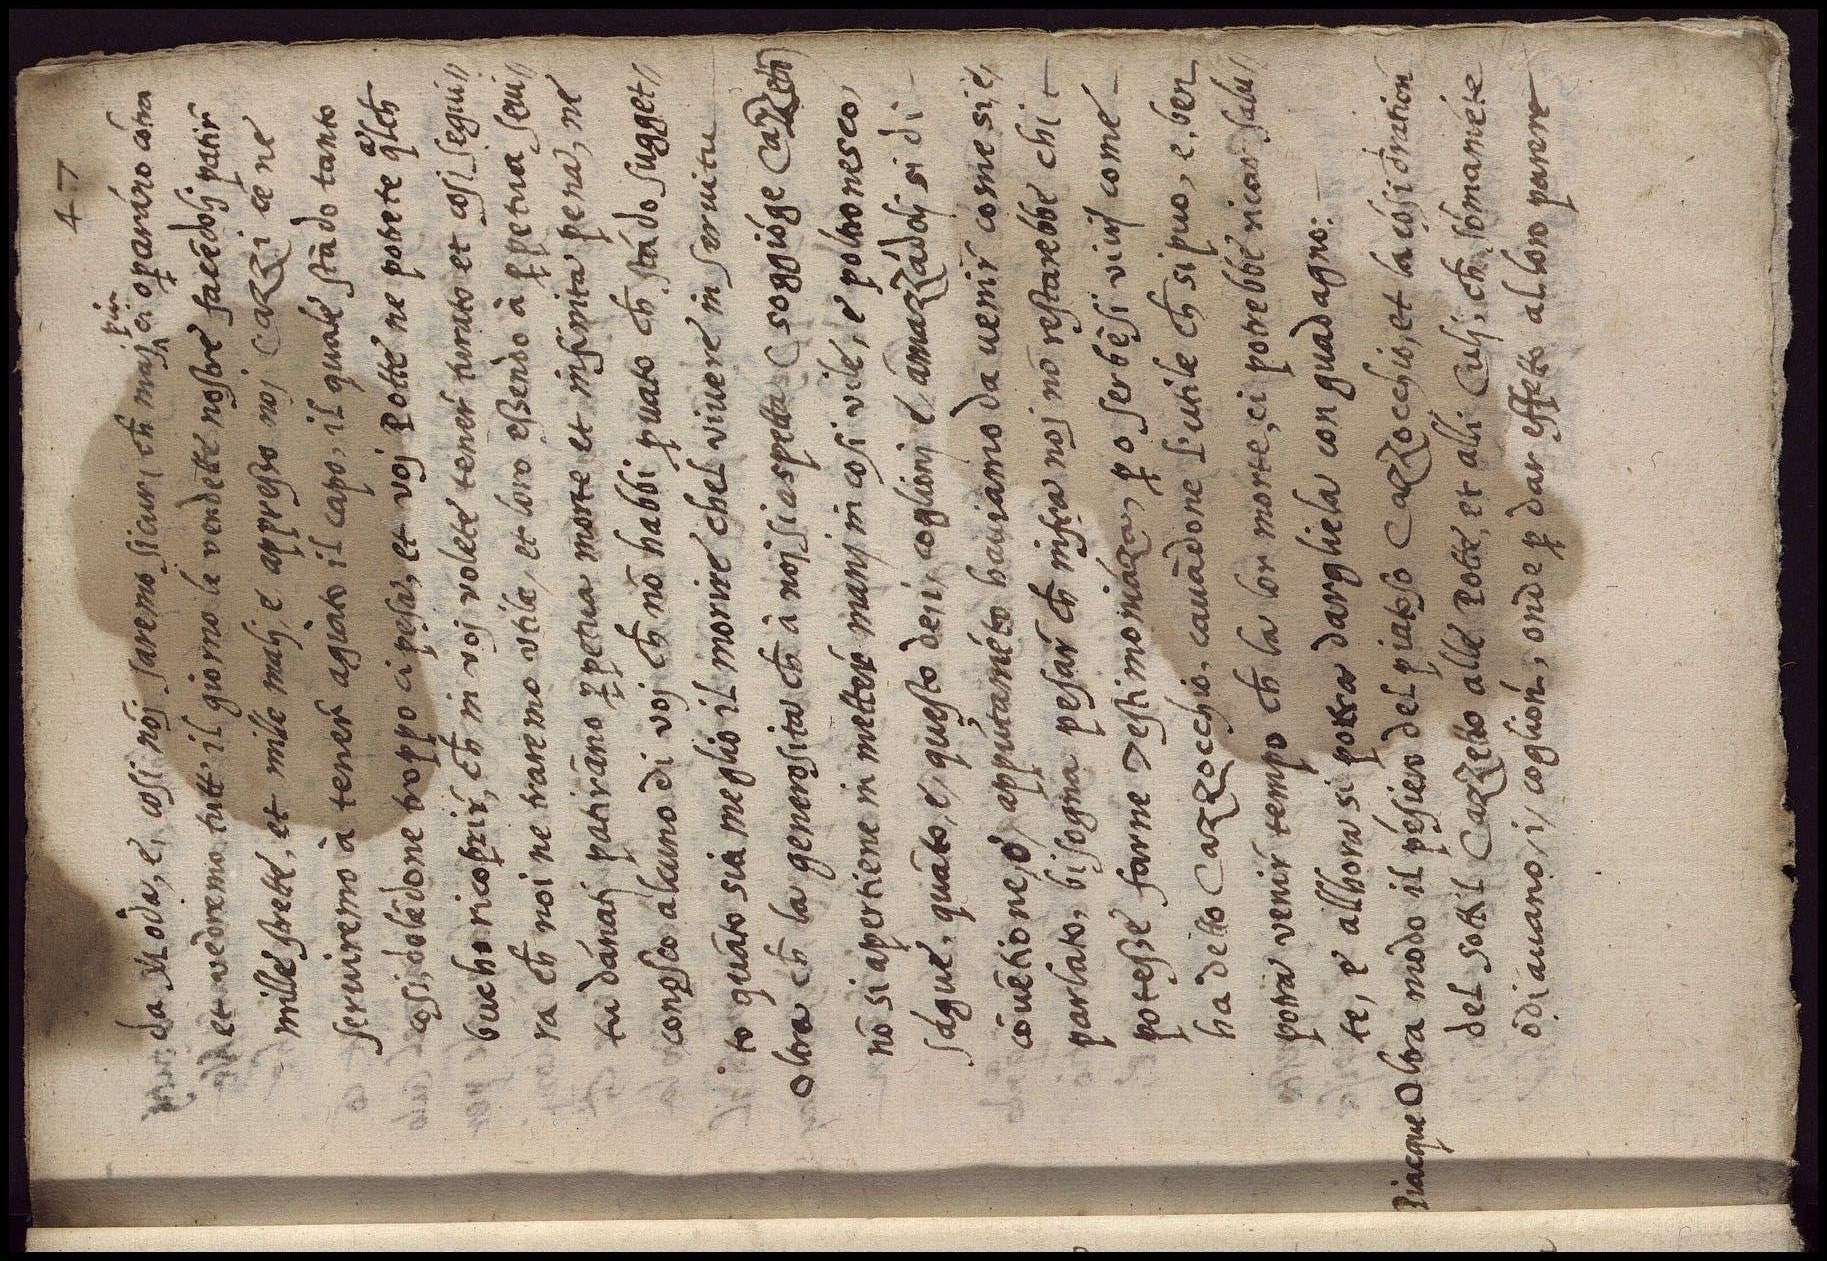 47
da M oda, e, cosi noj saremo sicuri ch maj piu ci oparãno cõtra
et vedremo tutt' il giorno le vendette nostre facẽdolj patir
mille strette, et mille malj, e appresso noj Cazzi cẽ ne
seruiremo à tener agiato il capo, il quale stãdo tanto
cosi, dolẽdone troppo ci pesa, et voj Potte ne potrete q̃lch
bucho ricoprir, ch in voj volete tener turato et cosi segui//
ra ch noi ne traremo vtile, et loro essendo à ꝑpetua serui//
tu dãnatj patirãno ꝑpetua morte et infinita pena, ne
conosco alcuno di voj ch nõ habbi ꝓuato ch stãdo sugget//
to quãto sia meglio il morire chel viuere in seruitu
Oltra ch la generosita ch à noj si aspetta soggiõge Cazzetti
nõ si apertiene in metter manj in cosi vile, e poltronesco,
sãgue, quãto, e, questo dei coglionj e amazzãdolj si di
cõuẽtione, o, appũtamẽto hauiamo da uenir come si è,
parlato, bisogna pẽsar ch infra noj nõ restarebbe chi
potesse farne testimoniãza, ꝑo serbẽsi viuj come
ha detto Cazzocchio, cauãdone l'utile ch si puo, e, ben
potra venir tempo ch la lor morte, ci potrebbe ricar salu//
te, e allhora si potra dargliela con guadagno:-
Piacque Oltra modo il pẽsiero del piatoso Cazzocchio, et la cõsidration
del sottil Cazzetto alle Potte, et alli Culj, ch sõmamẽte
odiauano, i, coglionj, onde ꝑ dar effetto al loro parere